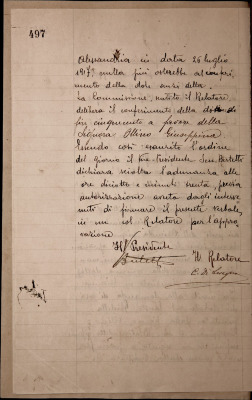 497
Alessandria in data 26 luglio
1917 nulla più osterebbe al conferi
mento della dote anzi della
La Commissione, sentito il Relatore
delibera il conferimento della dote di
lire cinquecento a favore della
Signora Giuseppina
Essendo così esaurito l'ordine
del Giorno il Presidente
dichiara sciolta l'adunanza alle
ore diciotto e minuti trenta, previa
autorizzazione avuta dagli interve
nuti di firmare il presente verbale,
in un col Relatore per l'appro
vazione
Il Presidente
Il Relatore